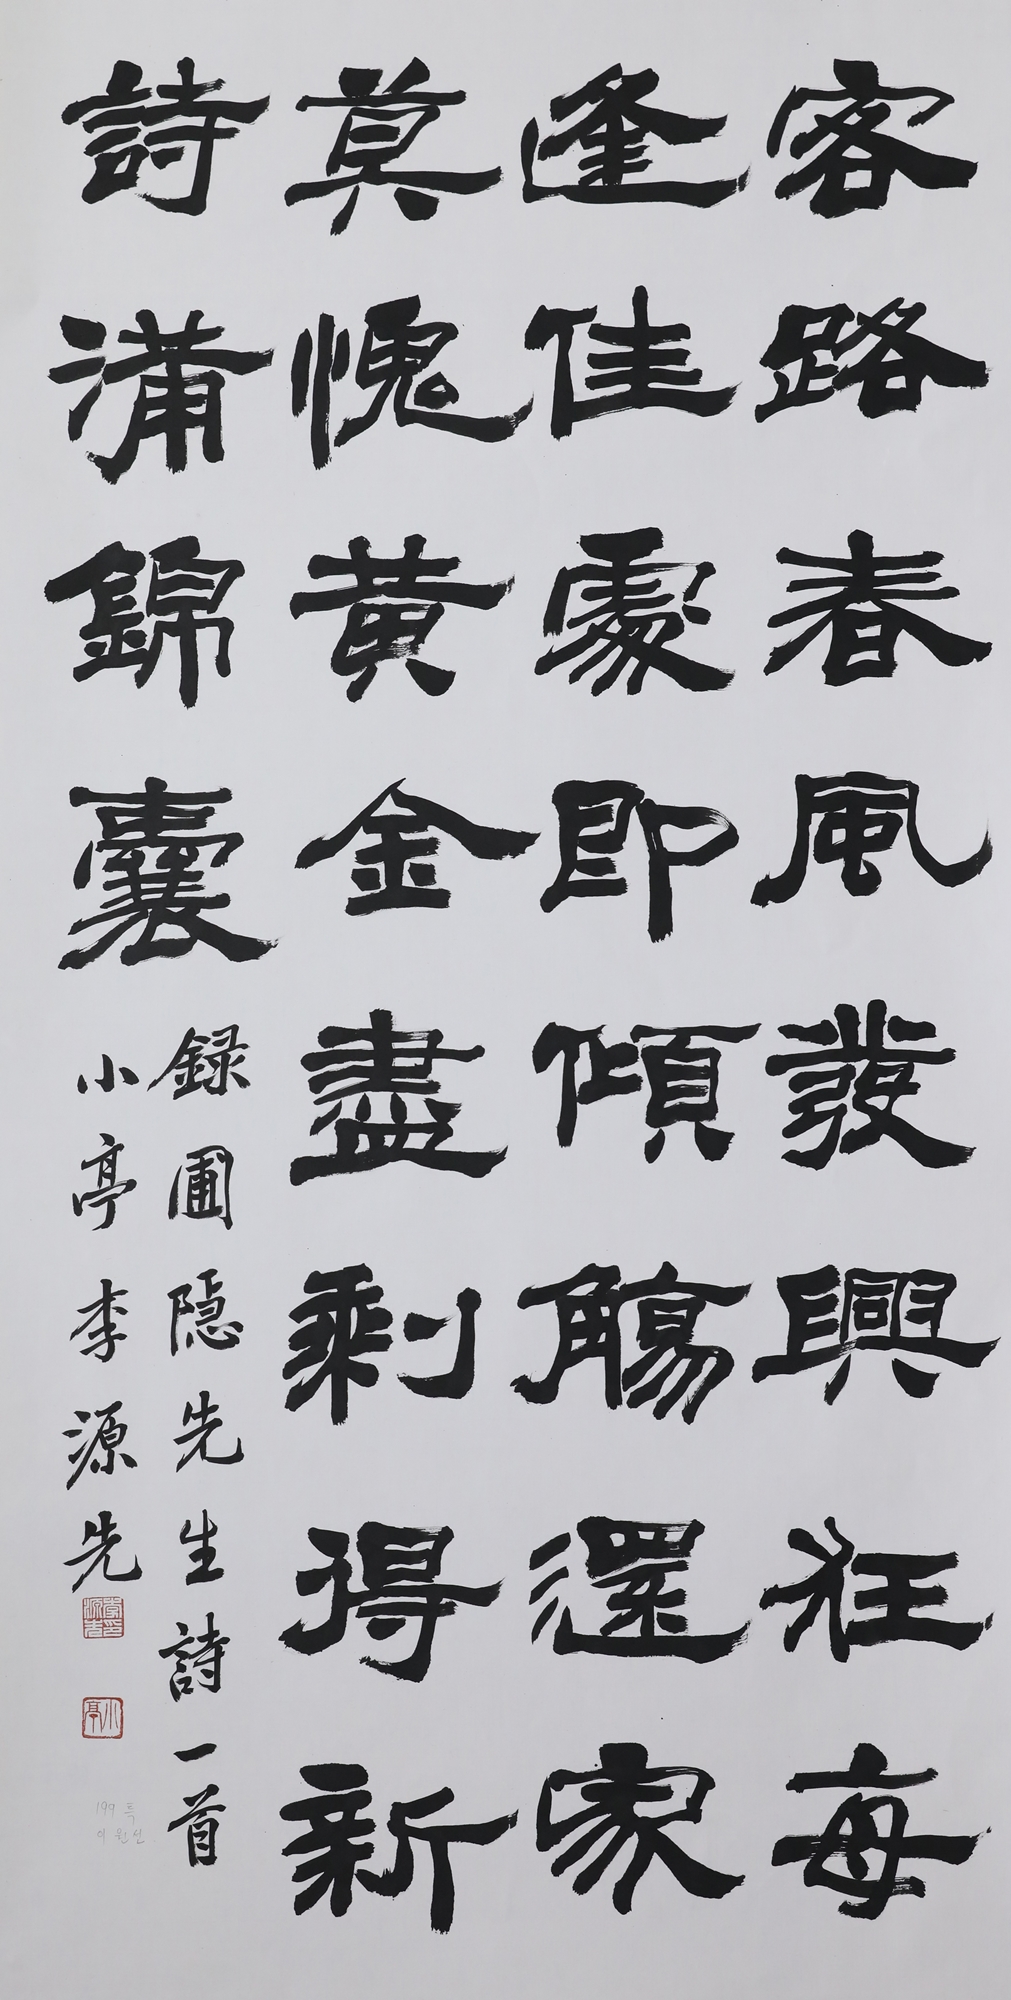 客路春風發興狂每
逢佳處即傾觴還家
莫愧黃金盡剩得新
詩滿錦囊
録圃隐先生詩一首
小亭李源先
小亭
199 특
이원선